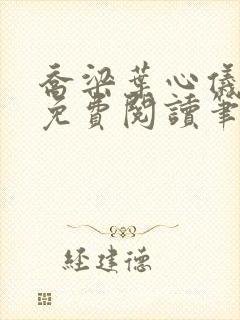 喬梁葉心儀
免費閱讀筆
經建德